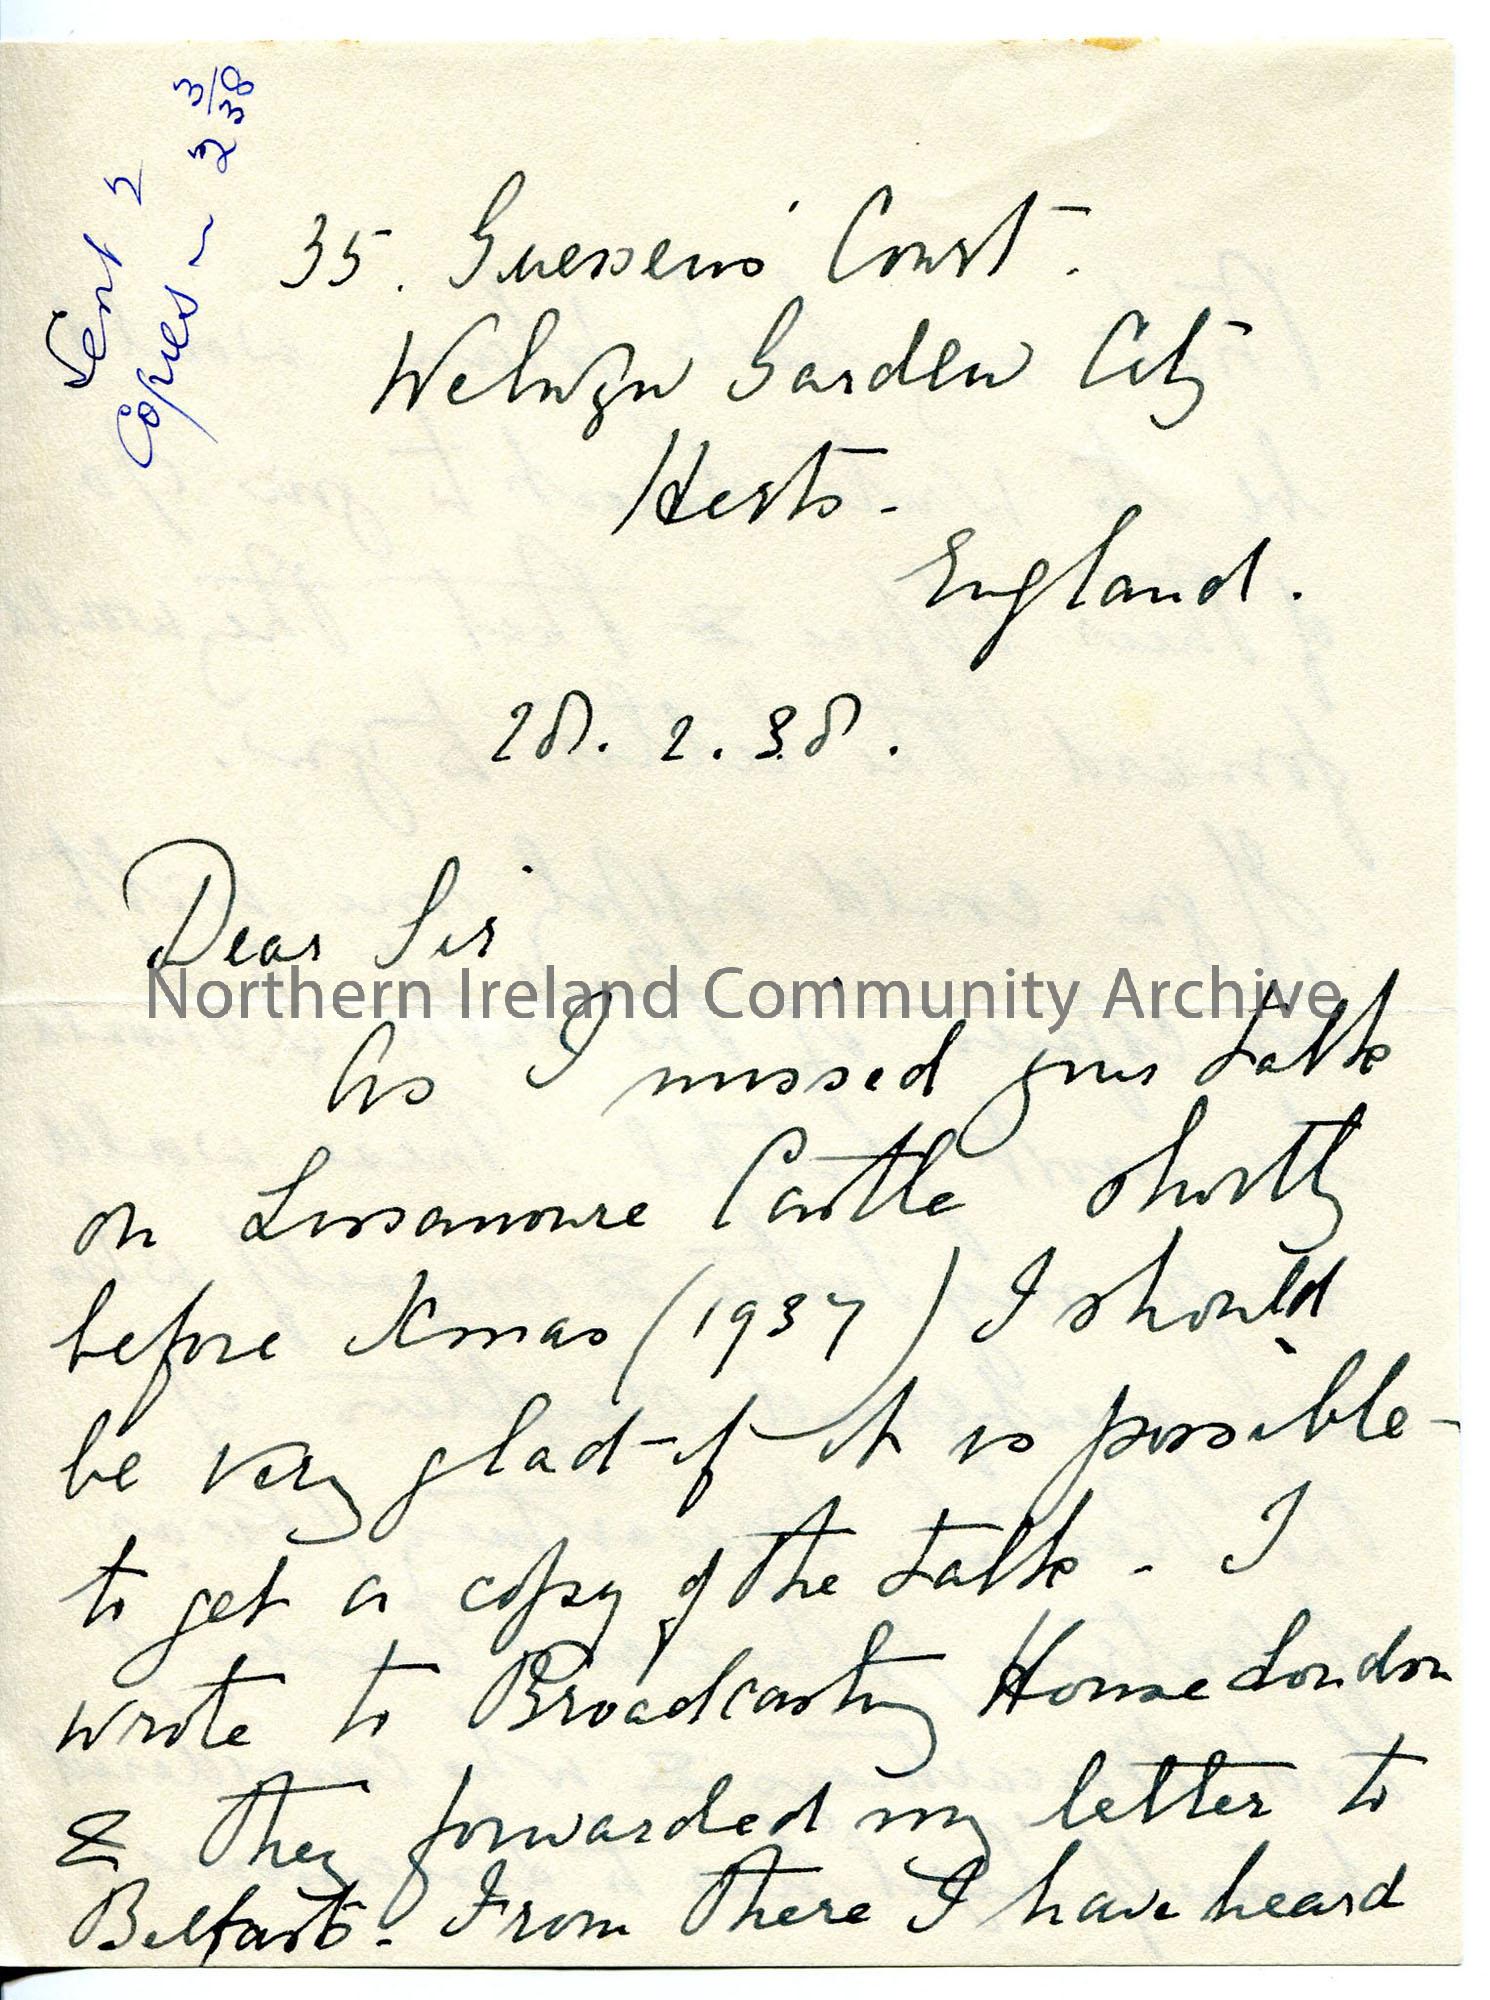 Sent 2
Copies ~ 2 3/38
35. Guessens Court.
Welwyn Garden City
Herts -
England.
28. 2. 38.
Dear Sir
Northern Ireland Community Archive
As I missed your talk
on Lissanoure Castle shortly
before Xmas (1937) I should
be very glad - if it is possible -
to get a copy of the talk - I
wrote to Broadcasting House London
& they forwarded my letter to
Belfast - From there I have heard